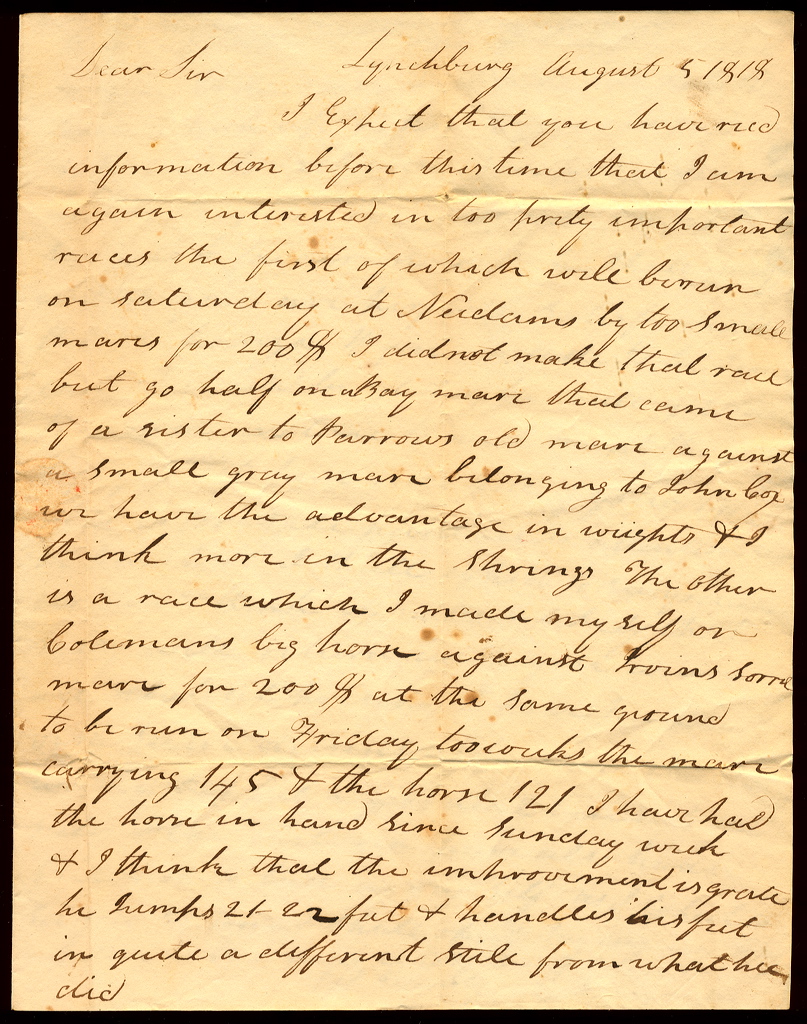 Dear Sir Lynchburg August 5 1818
I Expect that you have recd
information before this time that I am
again interested in too prity important
races the first of which will be run
on saturday at Neidams by too small
mares for 200 $ I did not make that race
but go half on a Bay mare that came
of a sister to Parrows old mare against
a small gray mare belonging to John Cox
we have the advantage in wieghts & I
think more in the Strings The other
is a race which I made my self on
Colemans big horse against Irvins sorrel
mare for 200 $ at the same ground
to be run on Friday too weeks the mare
carrying 145 & the horse 121 I have had
the horse in hand since sunday week
& I think that the improovement is grate
he Jumps 21-22 feet & handles his feet
in quite a different stile from what hee
did